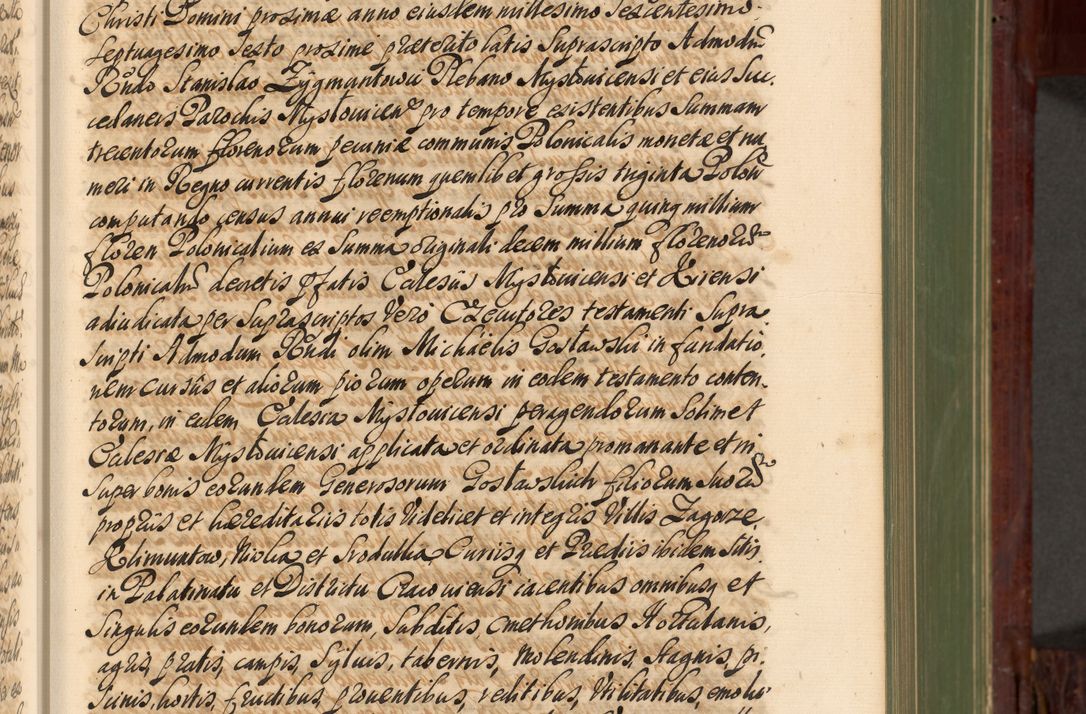 Christi Domini proximæ anno eiusdem millesimo sexcentesimo
septuagesimo sexto proximè præterito latis suprascripto Admodũ
Rñdo Stanislao Zygmuntowicz Plebano Mysłouicensi et eius Suc,
cedaneis Parochis Mysłouicen pro tempore existentibus Summam
trecentorum florenorum pecuniæ communis Polonicalis monetæ et nu
meri in Regno currentis florenum quemlibet grossis triginta Polon
computando census annui reemptionalis pro Summa quinq millium
floren Polonicalium ex Summa originali decem millium florenorũ
Polonicaliũ decretis pfatis Ecclesiis Mysłouicensi et Xirensi
adiudicata per suprascriptos Verò Executores testamenti Supra
scripti Admodum Rndi olim Michaelis Gosławski in fundatio,
nem cursus et aliorum piorum operum in eodem testamento conten,
torum, in eadem Ecclesia Mysłouicensi peragendorum Solim et
Ecclesiæ Mysłouicensi applicata et ordinata promanante et in
super bonis eorundem Generosorum Gosławskich filiorum suorũ
propriis et hæreditariis totis videlicet et integris Villis Zagorze,
Klimuntow, Niwka et Srodulka, Curiisq et Prædiis ibidem sitis
in Palatinatu et Districtu Cracouiensi iacentibus omnibusq et
singulis eorundem bonorum, subditis, cmethonibus Hortulanis,
agris, pratis, campis, syluis, tabernis, molendinis, stagnis, pi,
scinis, hortis, fructibus, prouentibus, reditibus, Vtilitatibus, emolu